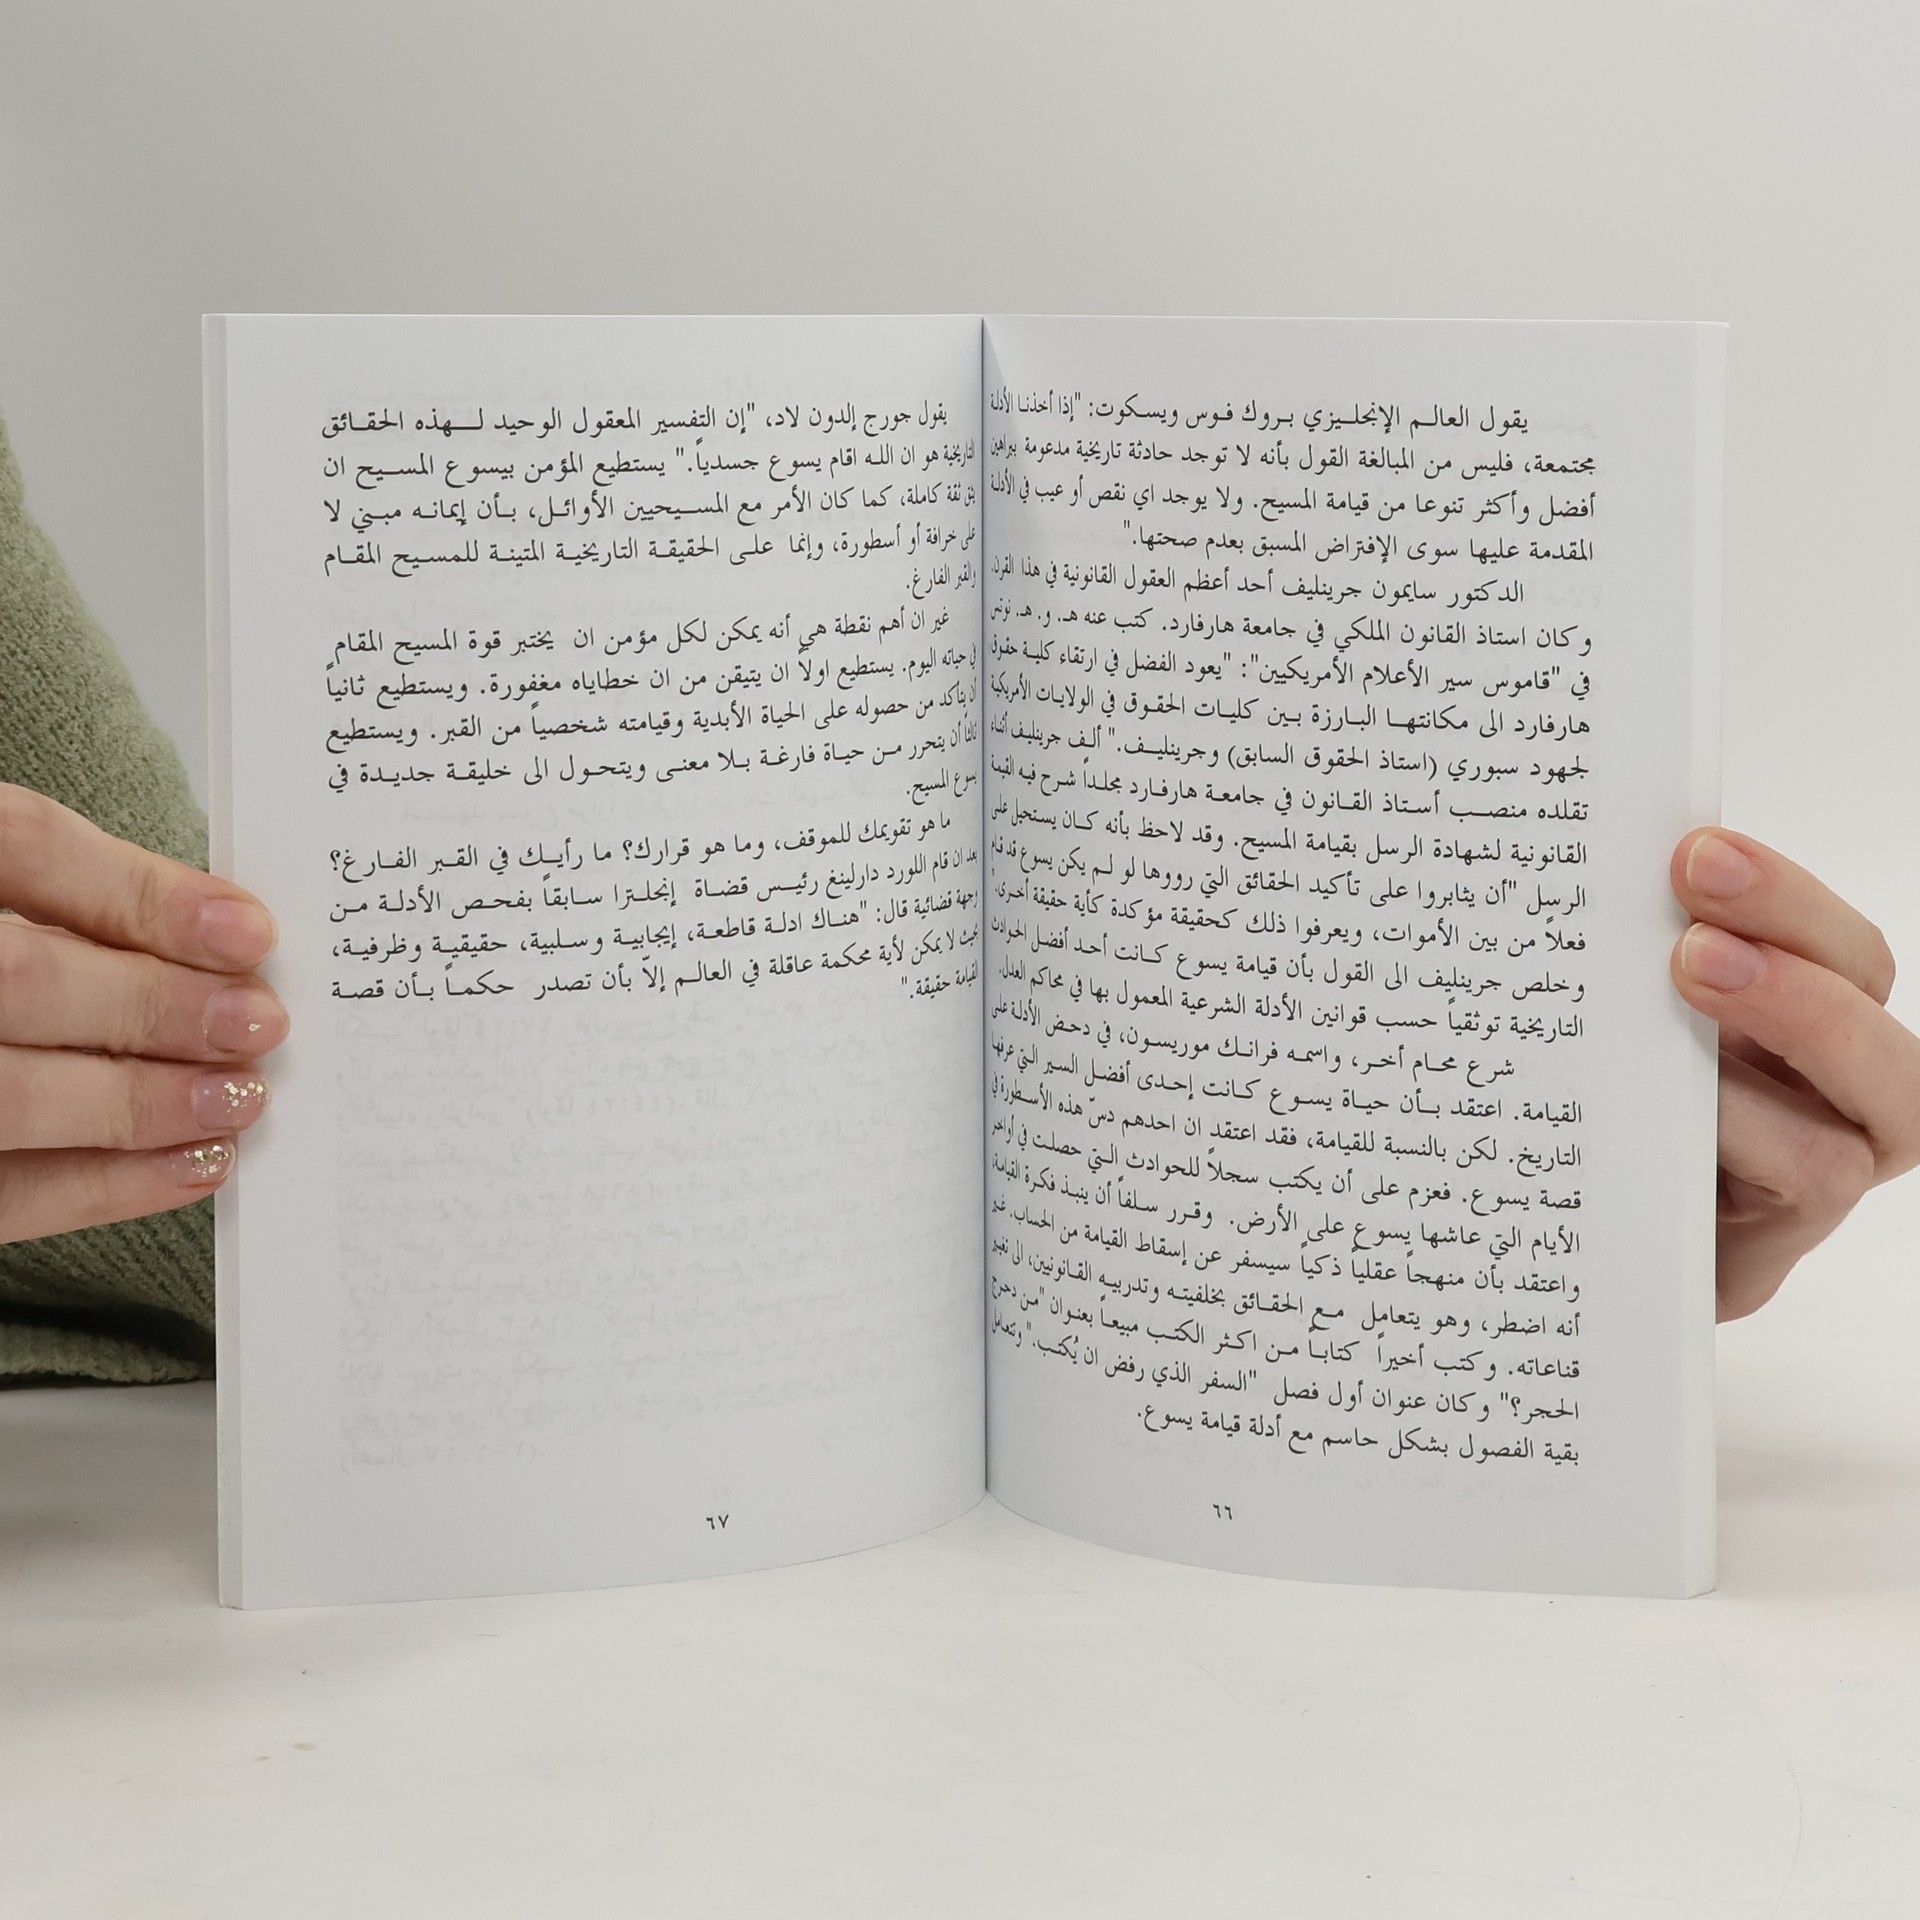 يقول العالم الإنجليزي بروك فوس ويسكوت: "إذا أخذنا الأدلة
مجتمعة، فليس من المبالغة القول بأنه لا توجد حادثة تاريخية مدعومة ببراهين
أفضل وأكثر تنوعا من قيامة المسيح. ولا يوجد اي نقص أو عيب في الأدلة
المقدمة عليها سوى الإفتراض المسبق بعدم صحتها."
الدكتور سايمون جرينليف أحد أعظم العقول القانونية في هذا القرن.
وكان استاذ القانون الملكي في جامعة هارفارد. كتب عنه هـ. و. هـ. نوتس
في "قاموس سير الأعلام الأمريكيين": "يعود الفضل في ارتقاء كلية حقوق
هارفارد الى مكانتها البارزة بين كليات الحقوق في الولايات الأمريكية
لجهود سبوري (استاذ الحقوق السابق) وجرينليف." ألف جرينليف أثناء
تقلده منصب أستاذ القانون في جامعة هارفارد مجلداً شرح فيه القيمة
القانونية لشهادة الرسل بقيامة المسيح. وقد لاحظ بأنه كان يستحيل على
الرسل "أن يثابروا على تأكيد الحقائق التي رووها لو لم يكن يسوع قد قام
فعلاً من بين الأموات، ويعرفوا ذلك كحقيقة مؤكدة كأية حقيقة أخرى."
وخلص جرينليف الى القول بأن قيامة يسوع كانت أحد أفضل الحوادث
التاريخية توثقياً حسب قوانين الأدلة الشرعية المعمول بها في محاكم العدل.
شرع محام أخر، واسمه فرانك موريسون، في دحض الأدلة على
القيامة. اعتقد بأن حياة يسوع كانت إحدى أفضل السير التي عرفها
التاريخ. لكن بالنسبة للقيامة، فقد اعتقد ان احدهم دسّ هذه الأسطورة في
قصة يسوع. فعزم على أن يكتب سجلاً للحوادث التي حصلت في أواخر
الأيام التي عاشها يسوع على الأرض. وقرر سلفاً أن ينبذ فكرة القيامة،
واعتقد بأن منهجاً عقلياً ذكياً سيسفر عن إسقاط القيامة من الحساب. غير
أنه اضطر، وهو يتعامل مع الحقائق بخلفيته وتدربيه القانونيين، الى تغيير
قناعاته. وكتب أخيراً كتاباً من اكثر الكتب مبيعاً بعنوان "من دحرج
الحجر؟" وكان عنوان أول فصل "السفر الذي رفض ان يُكتب." وتتعامل
بقية الفصول بشكل حاسم مع أدلة قيامة يسوع.
٦٦
يقول جورج إلدون لاد، "إن التفسير المعقول الوحيد لهذه الحقائق
التاريخية هو ان الله اقام يسوع جسدياً." يستطيع المؤمن بيسوع المسيح ان
يثق ثقة كاملة، كما كان الأمر مع المسيحيين الأوائل، بأن إيمانه مبني لا
على خرافة أو أسطورة، وإنما على الحقيقة التاريخية المتينة للمسيح المقام
والقبر الفارغ.
غير ان أهم نقطة هي أنه يمكن لكل مؤمن ان يختبر قوة المسيح المقام
في حياته اليوم. يستطيع اولاً ان يتيقن من ان خطاياه مغفورة. ويستطيع ثانياً
أن يتأكد من حصوله على الحياة الأبدية وقيامته شخصياً من القبر. ويستطيع
ثالثاً أن يتحرر من حياة فارغة بلا معنى ويتحول الى خليقة جديدة في
يسوع المسيح.
ما هو تقويمك للموقف، وما هو قرارك؟ ما رأيك في القبر الفارغ؟
بعد ان قام اللورد دارلينغ رئيس قضاة إنجلترا سابقاً بفحص الأدلة من
وجهة قضائية قال: "هناك ادلة قاطعة، إيجابية وسلبية، حقيقية وظرفية،
بحيث لا يمكن لأية محكمة عاقلة في العالم إلاّ بأن تصدر حكماً بأن قصة
القيامة حقيقة."
٦٧